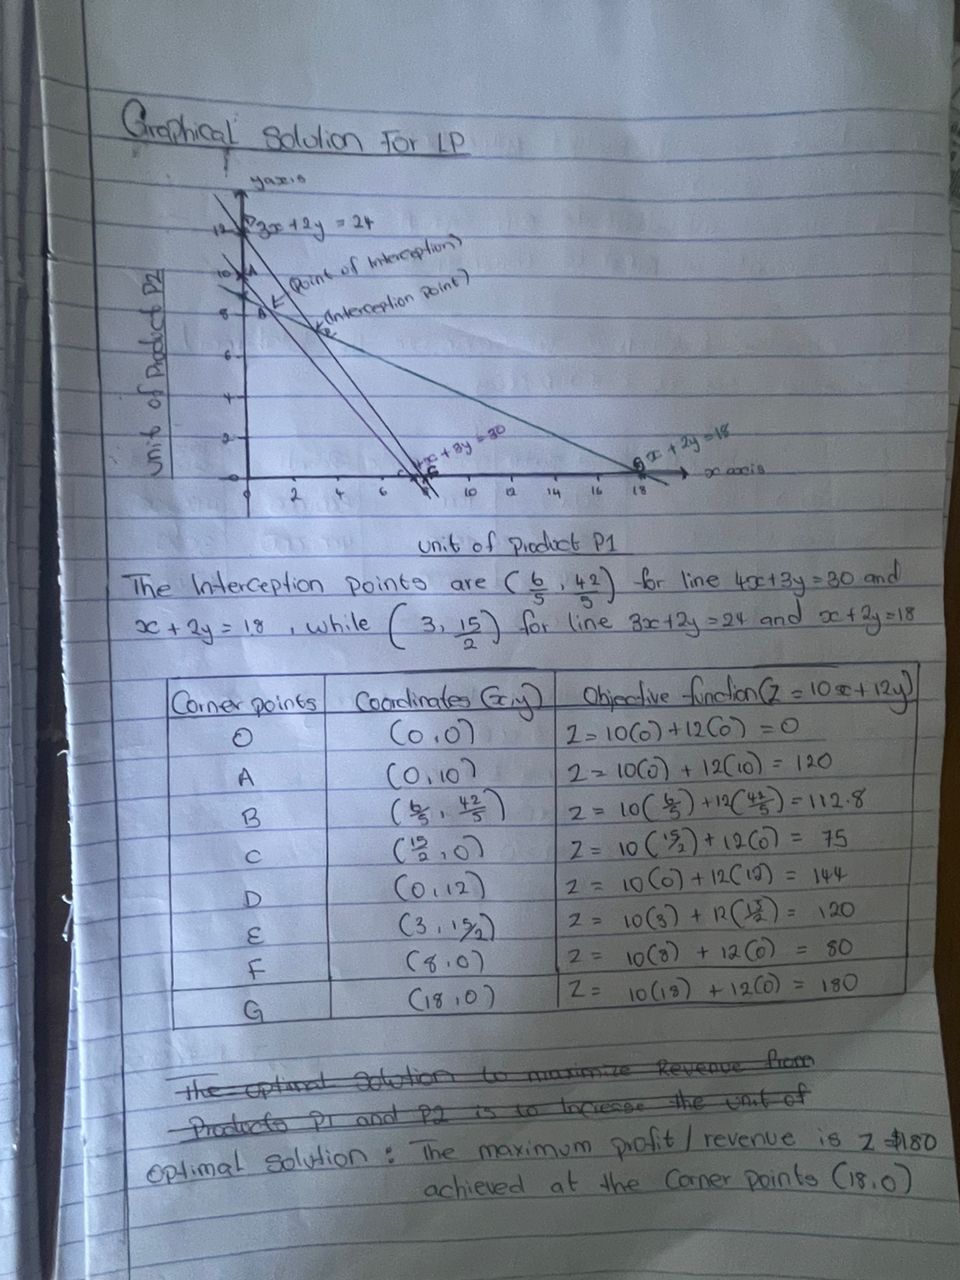 Graphical Solution For LP
y axis
12
3x + 2y = 24
(Point of Interception)
10 A
(Interception point)
8 B
E
6
4
2
Unit of Product P2
4x + 3y = 30
G x + 2y = 18
C F
x axis
0 2 4 6 8 10 12 14 16 18
unit of Product P1
The Interception points are (6/5, 42/5) for line 4x+3y=30 and
x + 2y = 18, while (3, 15/2) for line 3x+2y=24 and x+2y=18
Corner points Coordinates (x,y) Objective function (Z = 10x+12y)
O (0,0) Z = 10(0)+12(0) = 0
A (0,10) Z = 10(0) + 12(10) = 120
B (6/5, 42/5) Z = 10(6/5)+12(42/5) = 112.8
C (15/2, 0) Z = 10(15/2) + 12(0) = 75
D (0,12) Z = 10(0) + 12(12) = 144
E (3, 15/2) Z = 10(3) + 12(15/2) = 120
F (8,0) Z = 10(8) + 12(0) = 80
G (18,0) Z = 10(18) + 12(0) = 180
The optimal Solution to maximize Revenue from
Products P1 and P2 is to Increase the unit of
Optimal Solution : The maximum profit/revenue is Z = $180
achieved at the Corner points (18,0)